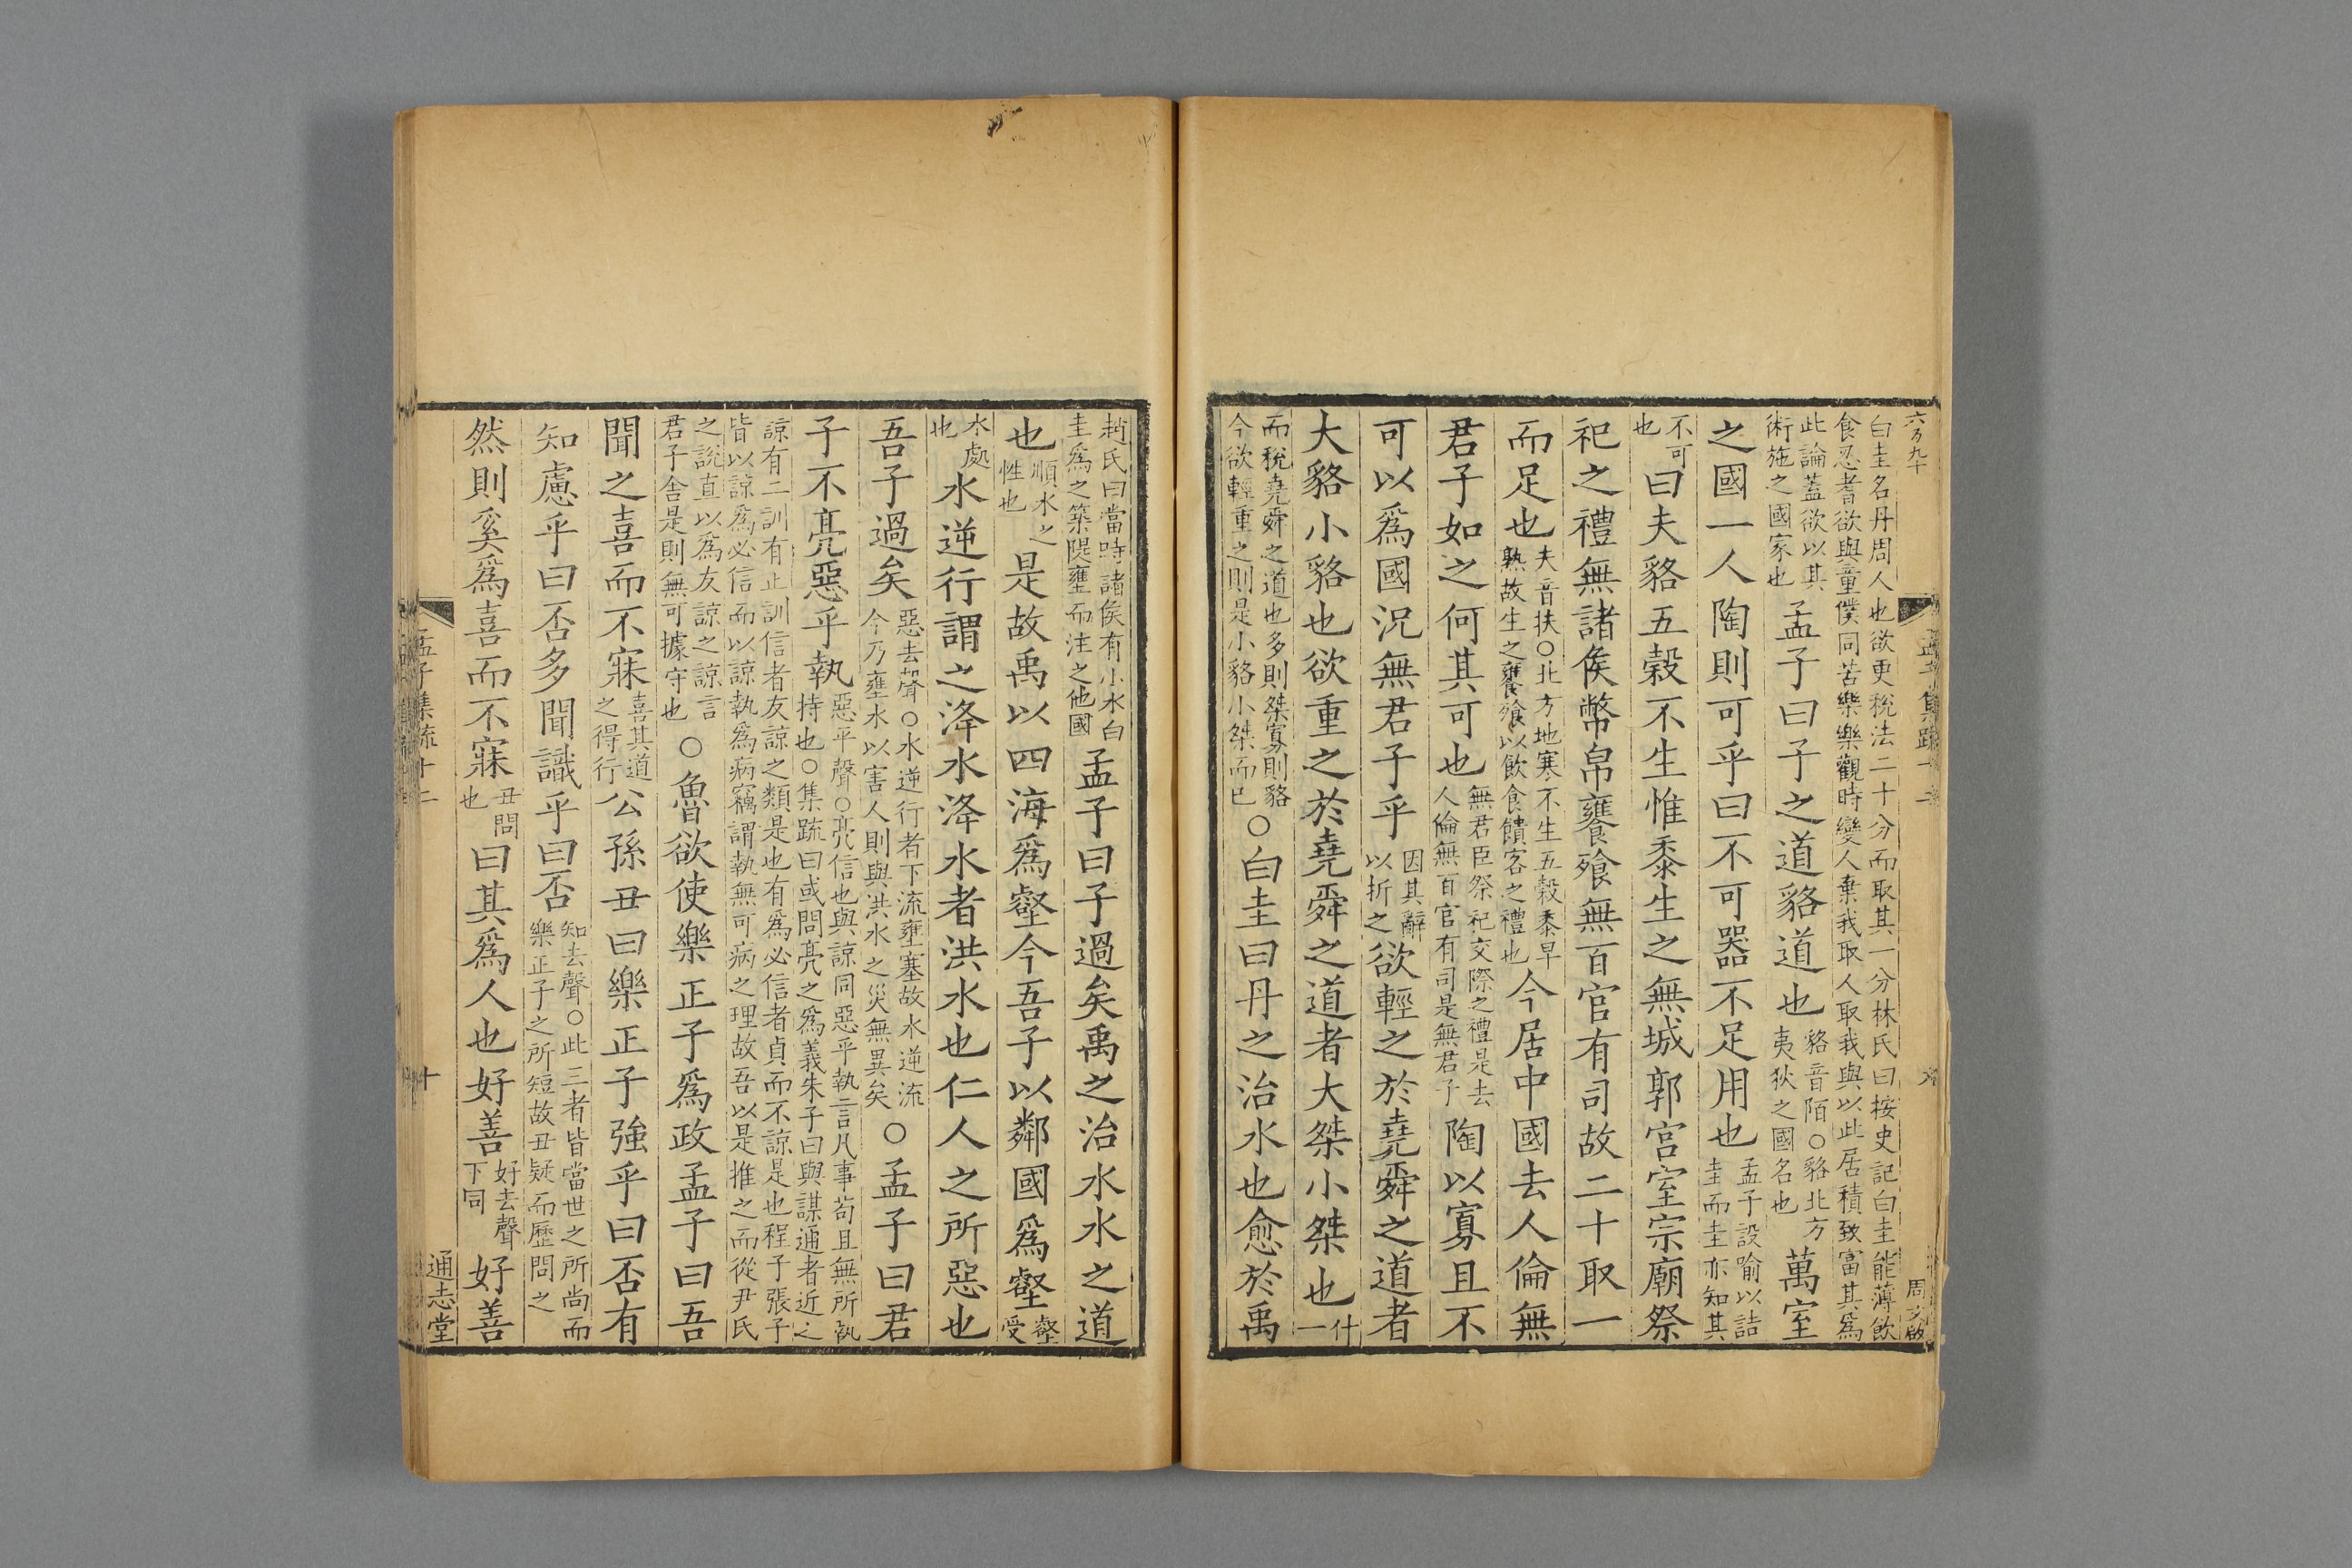 六百九十
孟子集疏十二
周文啟
白圭名丹周人也欲更稅法二十分而取其一分林氏曰按史記白圭能薄飲
食忍耆欲與童僕同苦樂樂觀時變人棄我取人取我與以此居積致富其爲
此論蓋欲以其
術施之國家也
孟子曰子之道貉道也
貉音陌○貉北方
夷狄之國名也
萬室
之國一人陶則可乎曰不可器不足用也
孟子設喻以詰
圭而圭亦知其
不可
也
曰夫貉五穀不生惟黍生之無城郭宮室宗廟祭
祀之禮無諸侯幣帛饔飧無百官有司故二十取一
而足也
夫音扶○北方地寒不生五穀黍早
熟故生之饔飧以飲食饋客之禮也
今居中國去人倫無
君子如之何其可也
無君臣祭祀交際之禮是去
人倫無百官有司是無君子
陶以寡且不
可以爲國況無君子乎
因其辭
以折之
欲輕之於堯舜之道者
大貉小貉也欲重之於堯舜之道者大桀小桀也
什
一
而稅堯舜之道也多則桀寡則貉
今欲輕重之則是小貉小桀而已
○白圭曰丹之治水也愈於禹
趙氏曰當時諸侯有小水白
圭爲之築隄壅而注之他國
孟子曰子過矣禹之治水水之道
也
順水之
性也
是故禹以四海爲壑今吾子以鄰國爲壑
壑
受
水處
也
水逆行謂之洚水洚水者洪水也仁人之所惡也
吾子過矣
惡去聲○水逆行者下流壅塞故水逆流
今乃壅水以害人則與洪水之災無異矣
○孟子曰君
子不亮惡乎執
惡平聲○亮信也與諒同惡乎執言凡事苟且無所執
持也○集疏曰或問亮之爲義朱子曰與謀通者近之
諒有二訓有止訓信者友諒之類是也有爲必信者貞而不諒是也程子張子
皆以諒爲必信而以諒執爲病竊謂執無可病之理故吾以是推之而從尹氏
之說直以爲友諒之諒言
君子舍是則無可據守也
○魯欲使樂正子爲政孟子曰吾
聞之喜而不寐
喜其道
之得行
公孫丑曰樂正子強乎曰否有
知慮乎曰否多聞識乎曰否
知去聲○此三者皆當世之所尚而
樂正子之所短故丑疑而歷問之
然則奚爲喜而不寐
丑問
也
曰其爲人也好善
好去聲
下同
好善
孟子集疏十二
十
通志堂